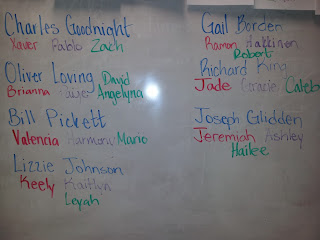 Charles Goodnight
Xavier Pablo Zach
Oliver Loving
David
Brianna Angelyna
Bill Pickett
Valencia Harmony Mario
Lizzie Johnson
Keely Kaitlyn
Leyah
Gail Borden
Ramon
Robert
Richard King
Jade Gracie Caleb
Joseph Glidden
Jeremiah Ashley
Hailee